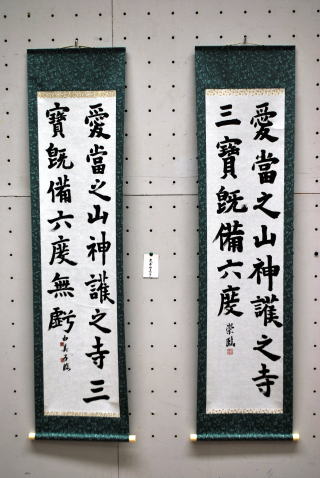 愛當之山神護之寺
三寶既備六度
崇臨
愛當之山神護之寺三
寶既備六度無虧